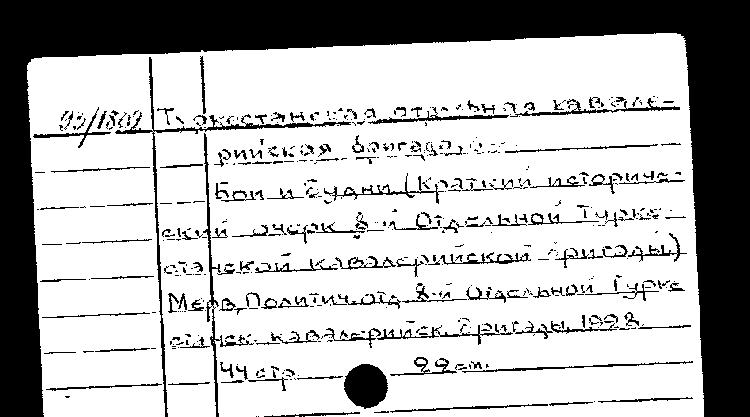 Туркестанская отдельная кавале-
рийская бригада,
Бои и будни (Краткий историче-
ский очерк 8-й Отдельной Турке-
станской кавалерийской бригады)
Мерв, Политич. отд. 8-й Отдельной Турке
станск. кавалерийск. бригады,
44 стр. 22 см.